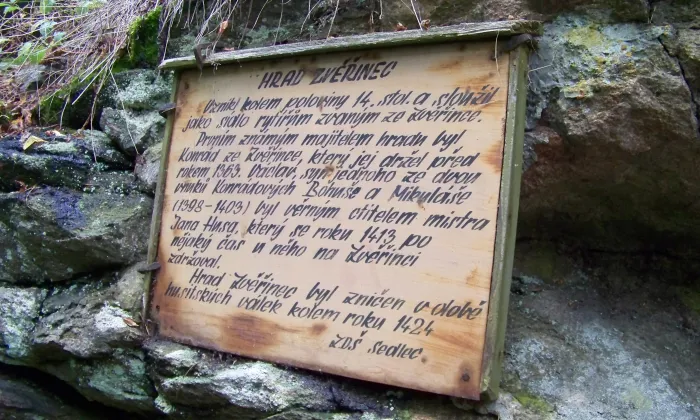 HRAD ZVĚŘINEC
Vznikl kolem poloviny 14. stol. a sloužil
jako sídlo rytířům zvaným ze Zvěřince.
Prvním známým majitelem hradu byl
Konrád ze Zvěřince, který jej držel před
rokem 1363. Václav, syn jednoho ze dvou
vnuků Konrádových Bohuše a Mikuláše
(1398-1403) byl věrným ctitelem mistra
Jana Husa, který se roku 1413 po
nějaký čas u něho na Zvěřinci
zdržoval.
Hrad Zvěřinec byl zničen v době
husitských válek kolem roku 1424
ZDŠ Sedlec.